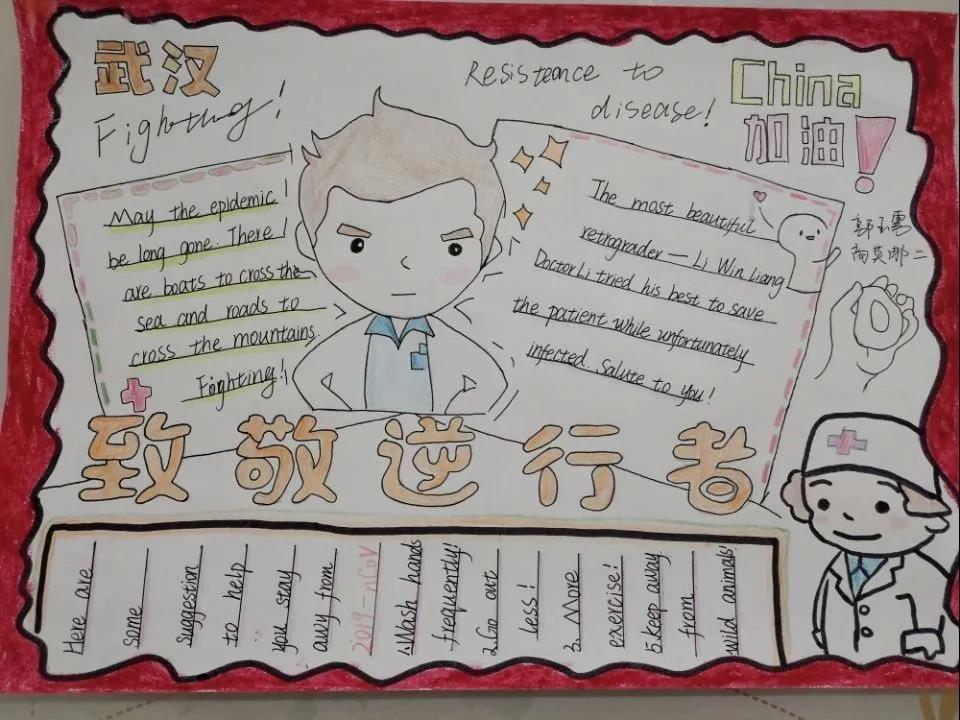 武汉
Fighting!
Resisteance to
disease!
China
加油!
May the epidemic
be long gone. There
are boats to cross the
sea and roads to
cross the mountains.
Fighting!
The most beautiful
retrograder — Li Win Liang
Doctor Li tried his best to save
the patient while unfortunately
infected. Salute to you!
致敬逆行者
Here are
some
suggestion
to help
you stay
awy from
2019-nCoV
1.Wash hands
frequently!
2.Go out
less!
3. More
exercise!
5.keep away
from
wild animals!